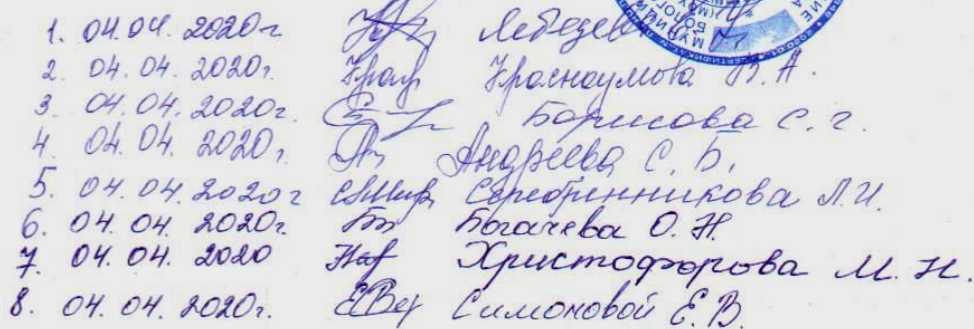 1. 04.04. 2020г Лебедев
2. 04.04. 2020г. Красноумова В.А.
3. 04.04. 2020г. Борисова С.г.
4. 04.04. 2020г. Андреева С.Б.
5. 04.04 2020г Серебрянникова Л.И.
6. 04.04. 2020г. Богачева О.Н.
7. 04.04. 2020 Христофорова М.Н.
8. 04.04. 2020г. Симоновой Е.В.